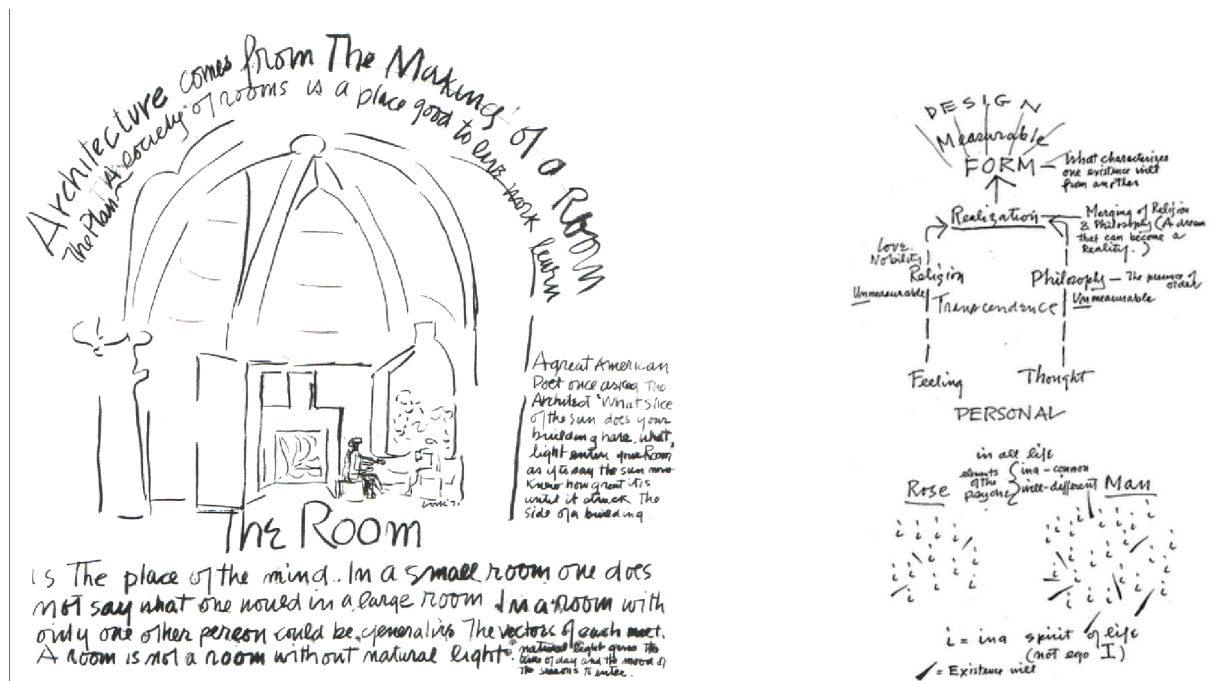 Architecture comes from The Making of a Room
The Plan A society of rooms is a place good to live work learn
A great American
Poet once asked The
Architect "What slice
of the sun does your
building have. what
light enters your Room
as if to say the sun never
knew how great it is
until it struck The
side of a building.
The Room
is The place of the mind. In a small room one does
not say what one would in a large room In a room with
only one other person could be generative The vectors of each meet.
A room is not a room without natural light.
natural light gives the
time of day and the mood of
the seasons to enter.
DESIGN
Measurable
FORM — What characterizes
one existence will
from another
Realization — Merging of Religion
& Philosophy (A dream
that can become a
Reality.)
Love.
Nobility
Religion
Philosophy — The presence of
order
Unmeasurable
Transcendence
Unmeasurable
Feeling
Thought
PERSONAL
in all life
Rose
elements
of the
psyche
ina-common
will-different
Man
i = ina spirit of life
(not ego I)
= Existence will